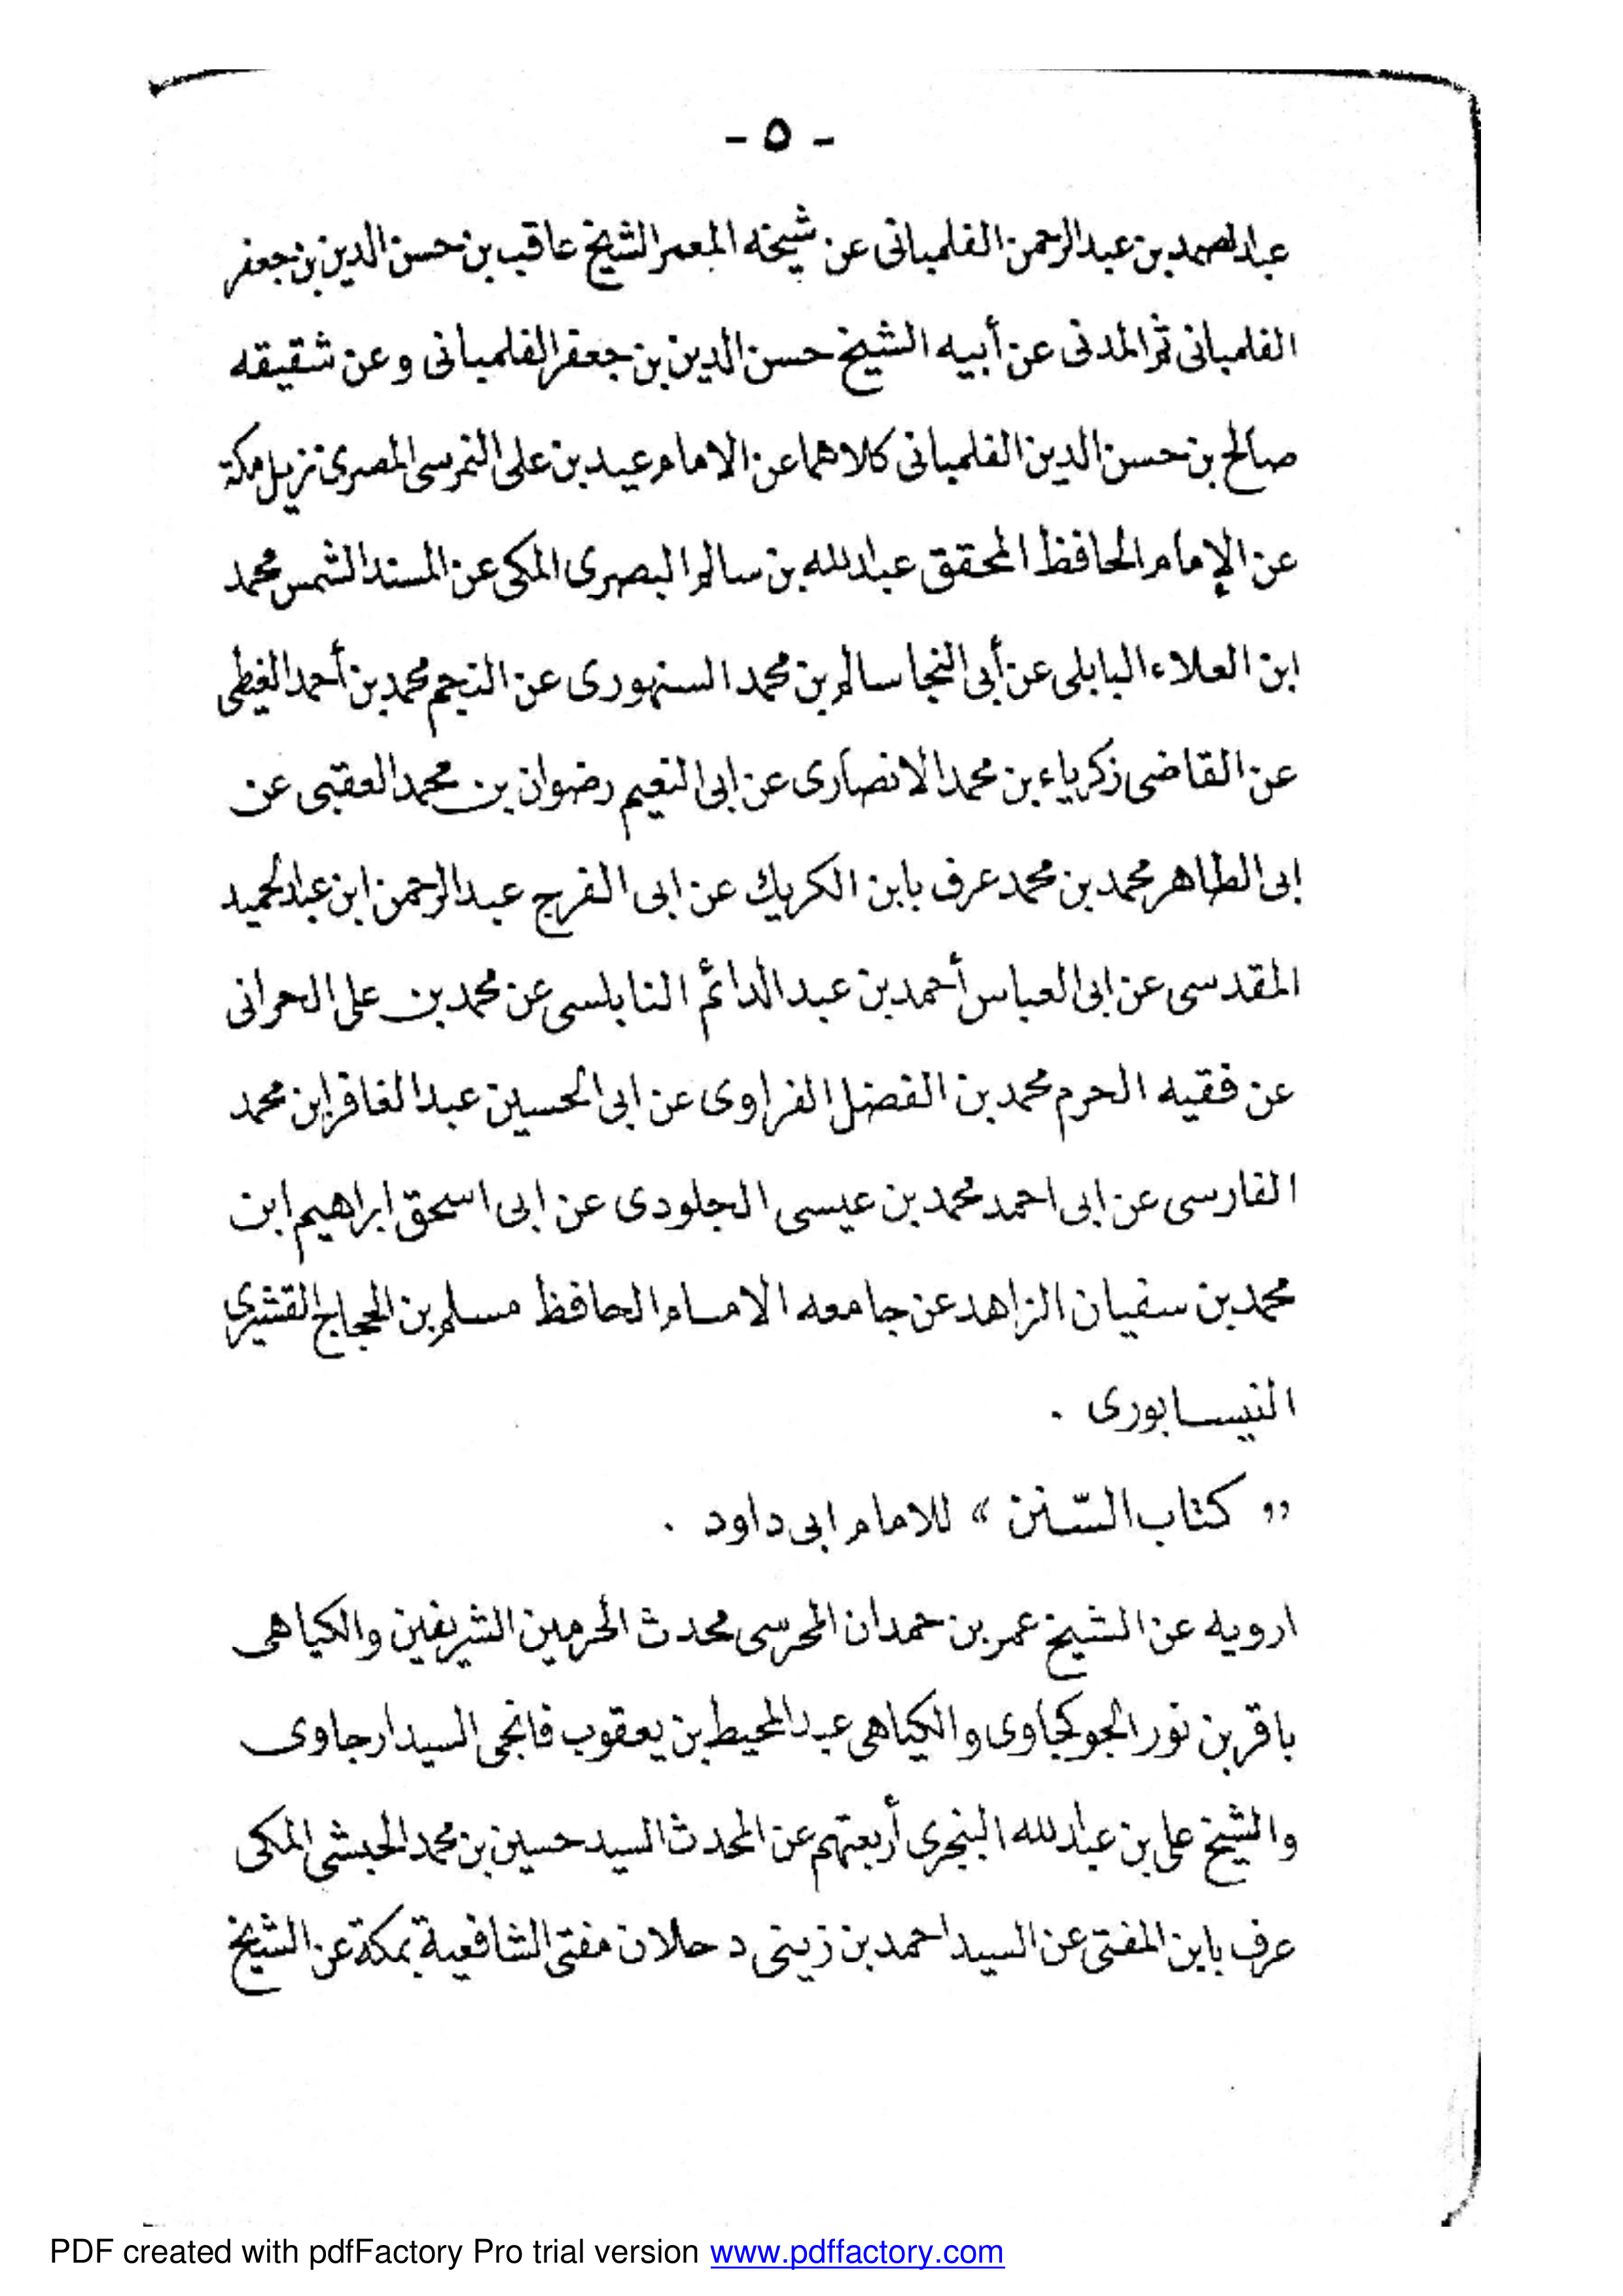 - ٥ -
عبدالصمد بن عبدالرحمن الفلمبانى عن شيخه المعمر الشيخ عاقب بن حسن الدين بن جعفر
الفلمبانى ثم المدنى عن أبيه الشيخ حسن الدين بن جعفر الفلمبانى وعن شقيقه
صالح بن حسن الدين الفلمبانى كلاهما عن الامام عيد بن على النمرسى المصرى نزيل مكة
عن الإمام الحافظ المحقق عبدالله بن سالم البصرى المكى عن المسند الشمس محمد
ابن العلاء البابلى عن أبى النجا سالم بن محمد السنهورى عن النجم محمد بن أحمد الغيطى
عن القاضى زكرياء بن محمد الانصارى عن ابى النعيم رضوان بن محمد العقبى عن
ابى الطاهر محمد بن محمد عرف بابن الكريك عن ابى الفرج عبدالرحمن ابن عبدالحميد
المقدسى عن ابى العباس أحمد بن عبد الدائم النابلسى عن محمد بن على الحرانى
عن فقيه الحرم محمد بن الفضل الفراوى عن ابى الحسين عبد الغافر ابن محمد
الفارسى عن ابى احمد محمد بن عيسى الجلودى عن ابى اسحق ابراهيم ابن
محمد بن سفيان الزاهد عن جامعه الامام الحافظ مسلم بن الحجاج القشيرى
النيسابورى .
" كتاب السّنن » للامام ابى داود .
ارويه عن الشيخ عمر بن حمدان المحرسى محدث الحرمين الشريفين والكياهى
باقر بن نور الجوكجاوى والكياهى عبدالمحيط بن يعقوب فانجى السيدارجاوى
والشيخ على بن عبدالله البنجرى أربعتهم عن المحدث السيد حسين بن محمد الحبشى المكى
عرف بابن المفتى عن السيد احمد بن زينى دحلان مفتى الشافعية بمكة عن الشيخ
PDF created with pdfFactory Pro trial version www.pdffactory.com